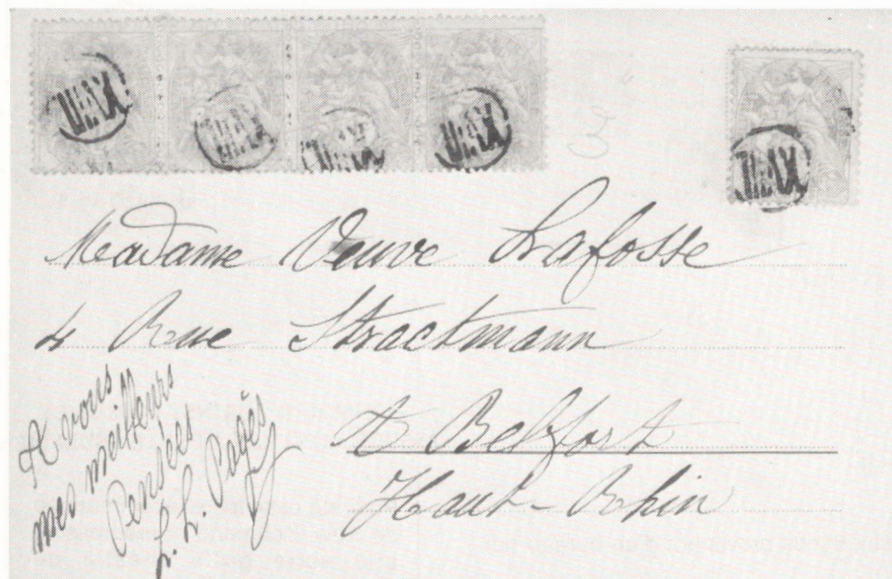 Madame Veuve Lafosse
4 Rue Stractmann
à Belfort
Haut-Rhin
A vous
mes meilleurs
Pensées
L. L. Pagès